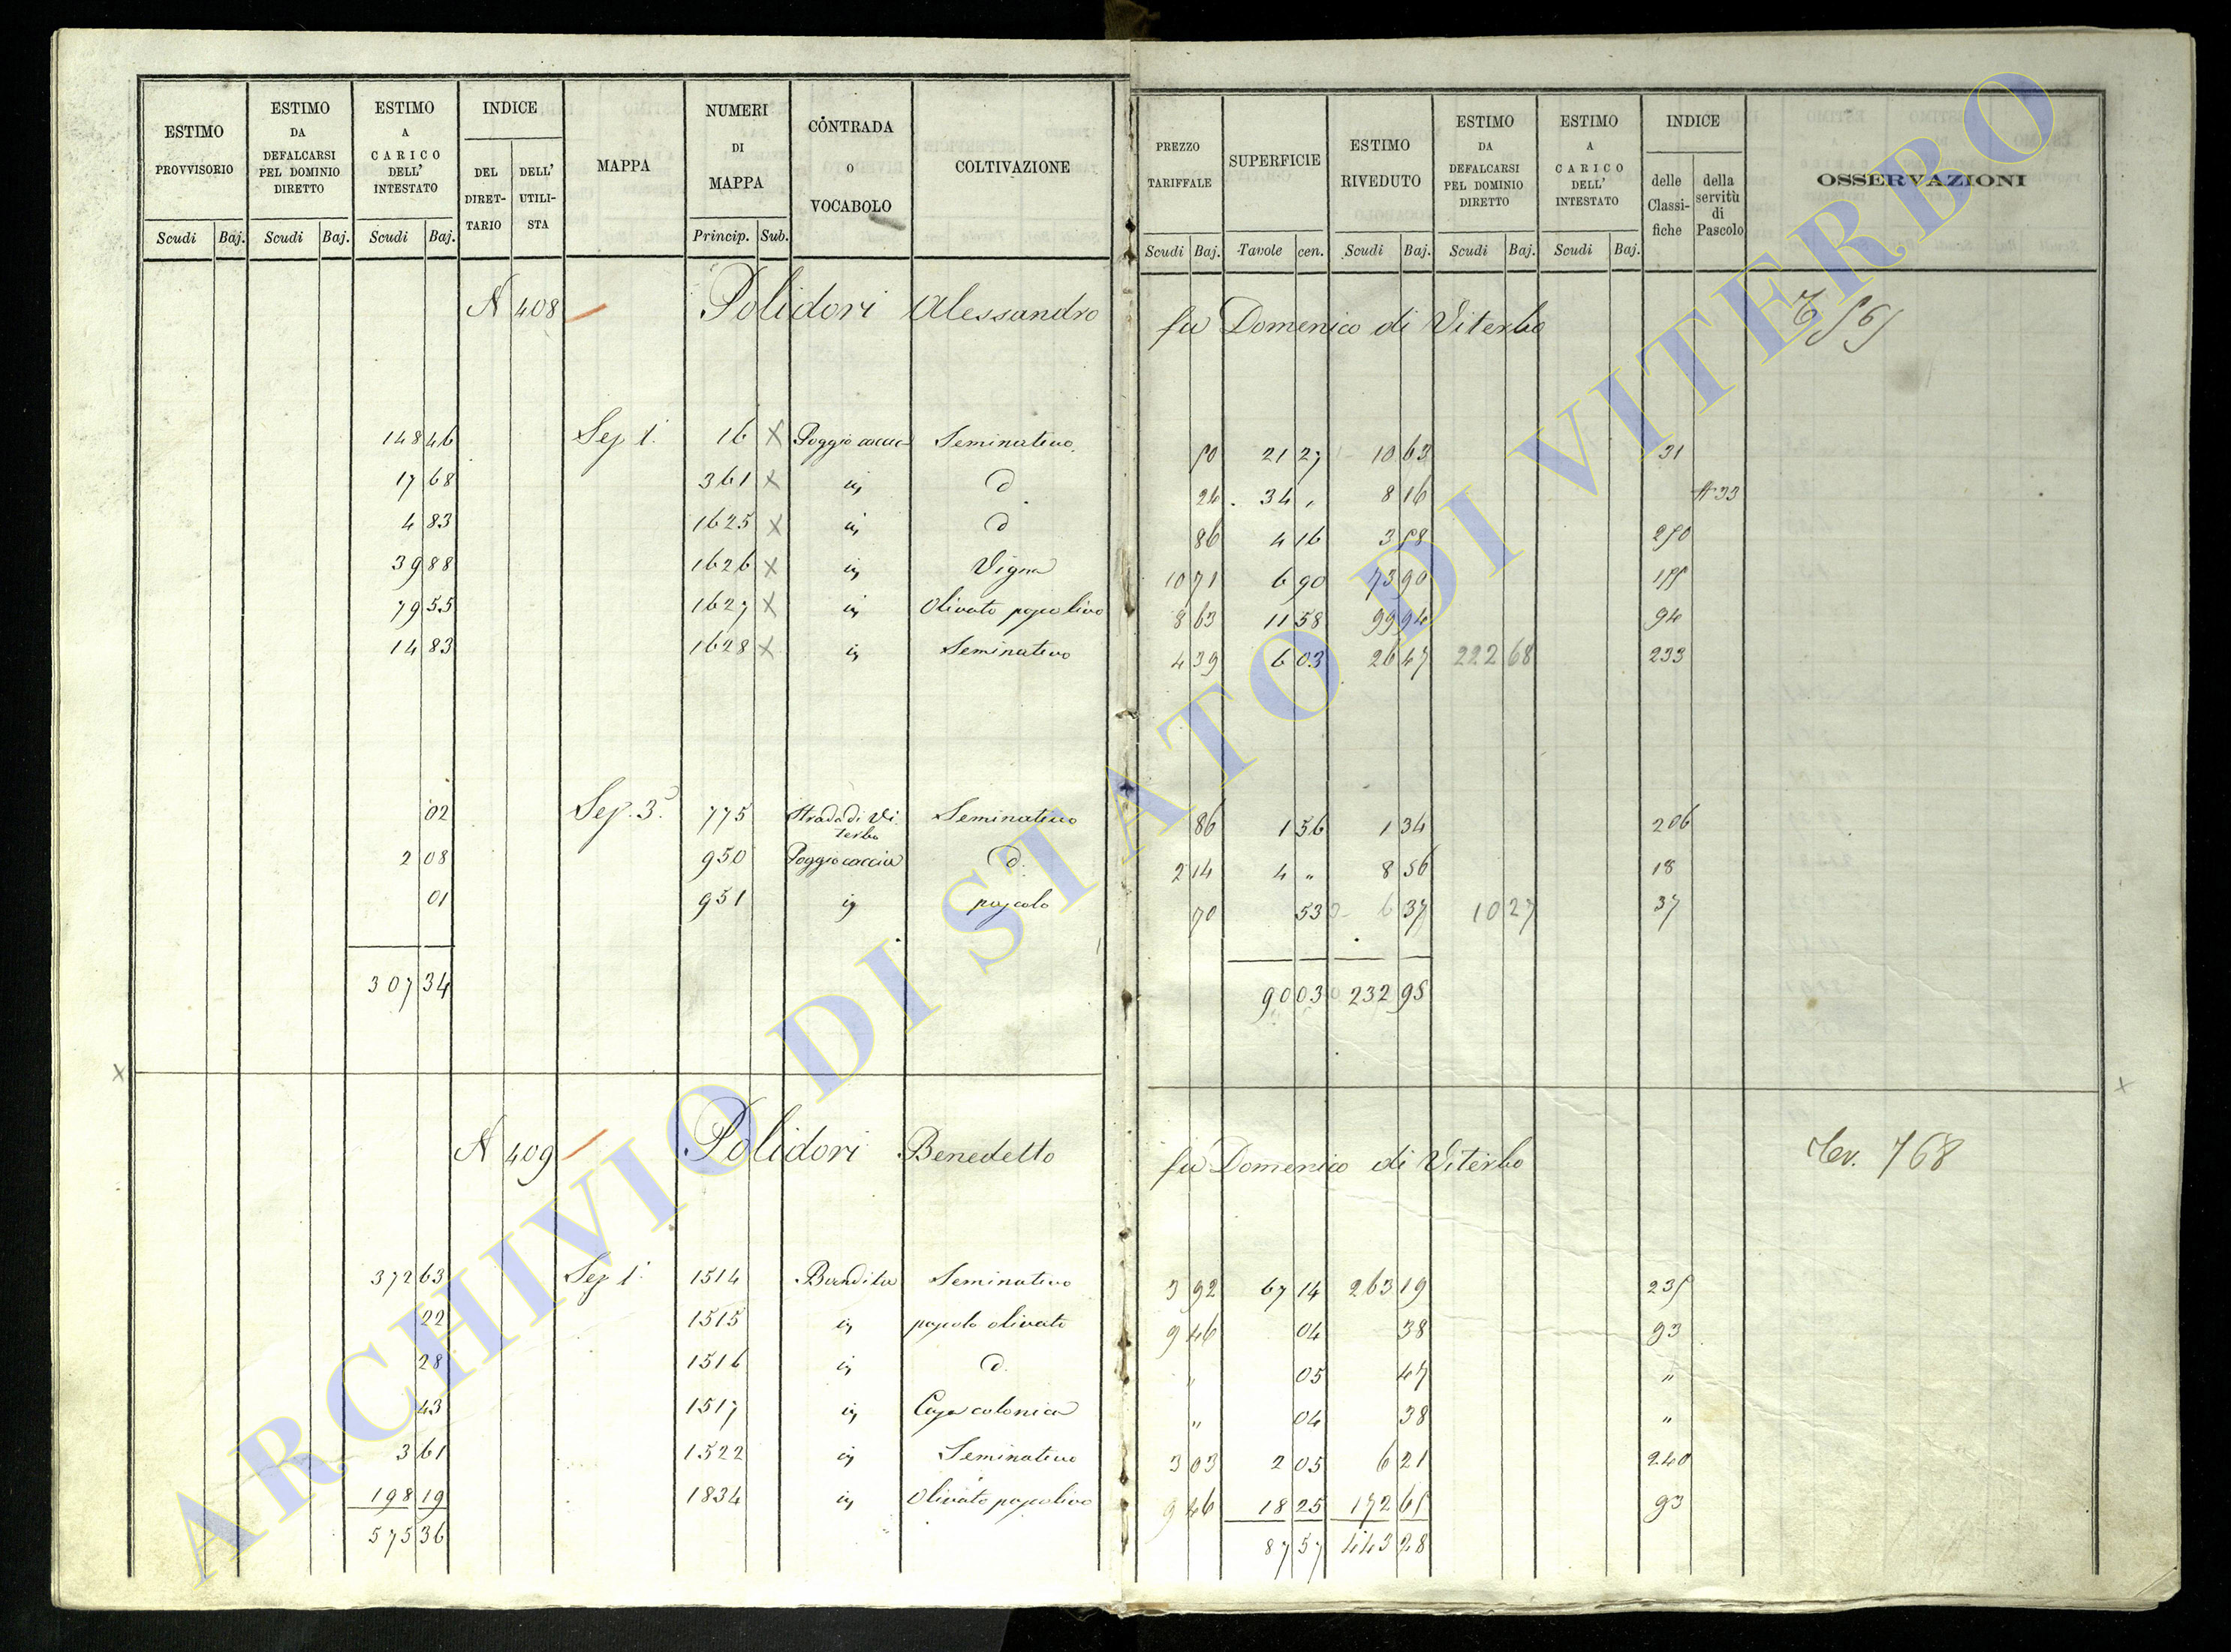 ESTIMO PROVVISORIO
ESTIMO DA DEFALCARSI PEL DOMINIO DIRETTO
ESTIMO A CARICO DELL' INTESTATO
INDICE
DEL DIRETTARIO
DELL' UTILISTA
MAPPA
NUMERI DI MAPPA
CONTRADA O VOCABOLO
COLTIVAZIONE
PREZZO TARIFFALE
SUPERFICIE
ESTIMO RIVEDUTO
ESTIMO DA DEFALCARSI PEL DOMINIO DIRETTO
ESTIMO A CARICO DELL' INTESTATO
INDICE
delle Classifiche
della servitù di Pascolo
OSSERVAZIONI
Scudi Baj. Scudi Baj. Scudi Baj. Princip. Sub. Scudi Baj. Tavole cen. Scudi Baj. Scudi Baj. Scudi Baj.
N 408 Polidori Alessandro fu Domenico di Viterbo
148 46 Sez 1ª 16 X Seminativo 50 21 27 10 63 31
17 68 361 X id d 24 34 " 8 16 33
4 83 1625 X id d 86 4 16 3 58 250
39 88 1626 X id Vigna 10 71 6 90 73 90 155
79 55 1627 X id Olivato pascolivo 8 63 11 58 99 94 94
14 83 1628 X id Seminativo 4 39 6 03 26 47 222 68 233
02 Sez. 3ª 775 Strada di Viterbo Seminativo 86 1 56 1 34 206
2 08 950 Poggio caccia d. 2 14 4 " 8 56 18
01 951 id pascolo 70 53 37 10 27 37
307 34 90 03 232 95
X X
N 409 Polidori Benedetto fu Domenico di Viterbo 768
372 63 Sez 1ª 1514 Bandita Seminativo 3 92 67 14 263 19 235
22 1515 id pascolo olivato 9 46 04 38 93
28 1516 id d. " 05 47 "
43 1517 id Casa colonica " 04 38 "
3 61 1522 id Seminativo 3 03 2 05 6 21 240
198 19 1834 id Olivato pascolivo 9 46 18 25 172 65 93
575 36 87 57 443 28
ARCHIVIO DI STATO DI VITERBO